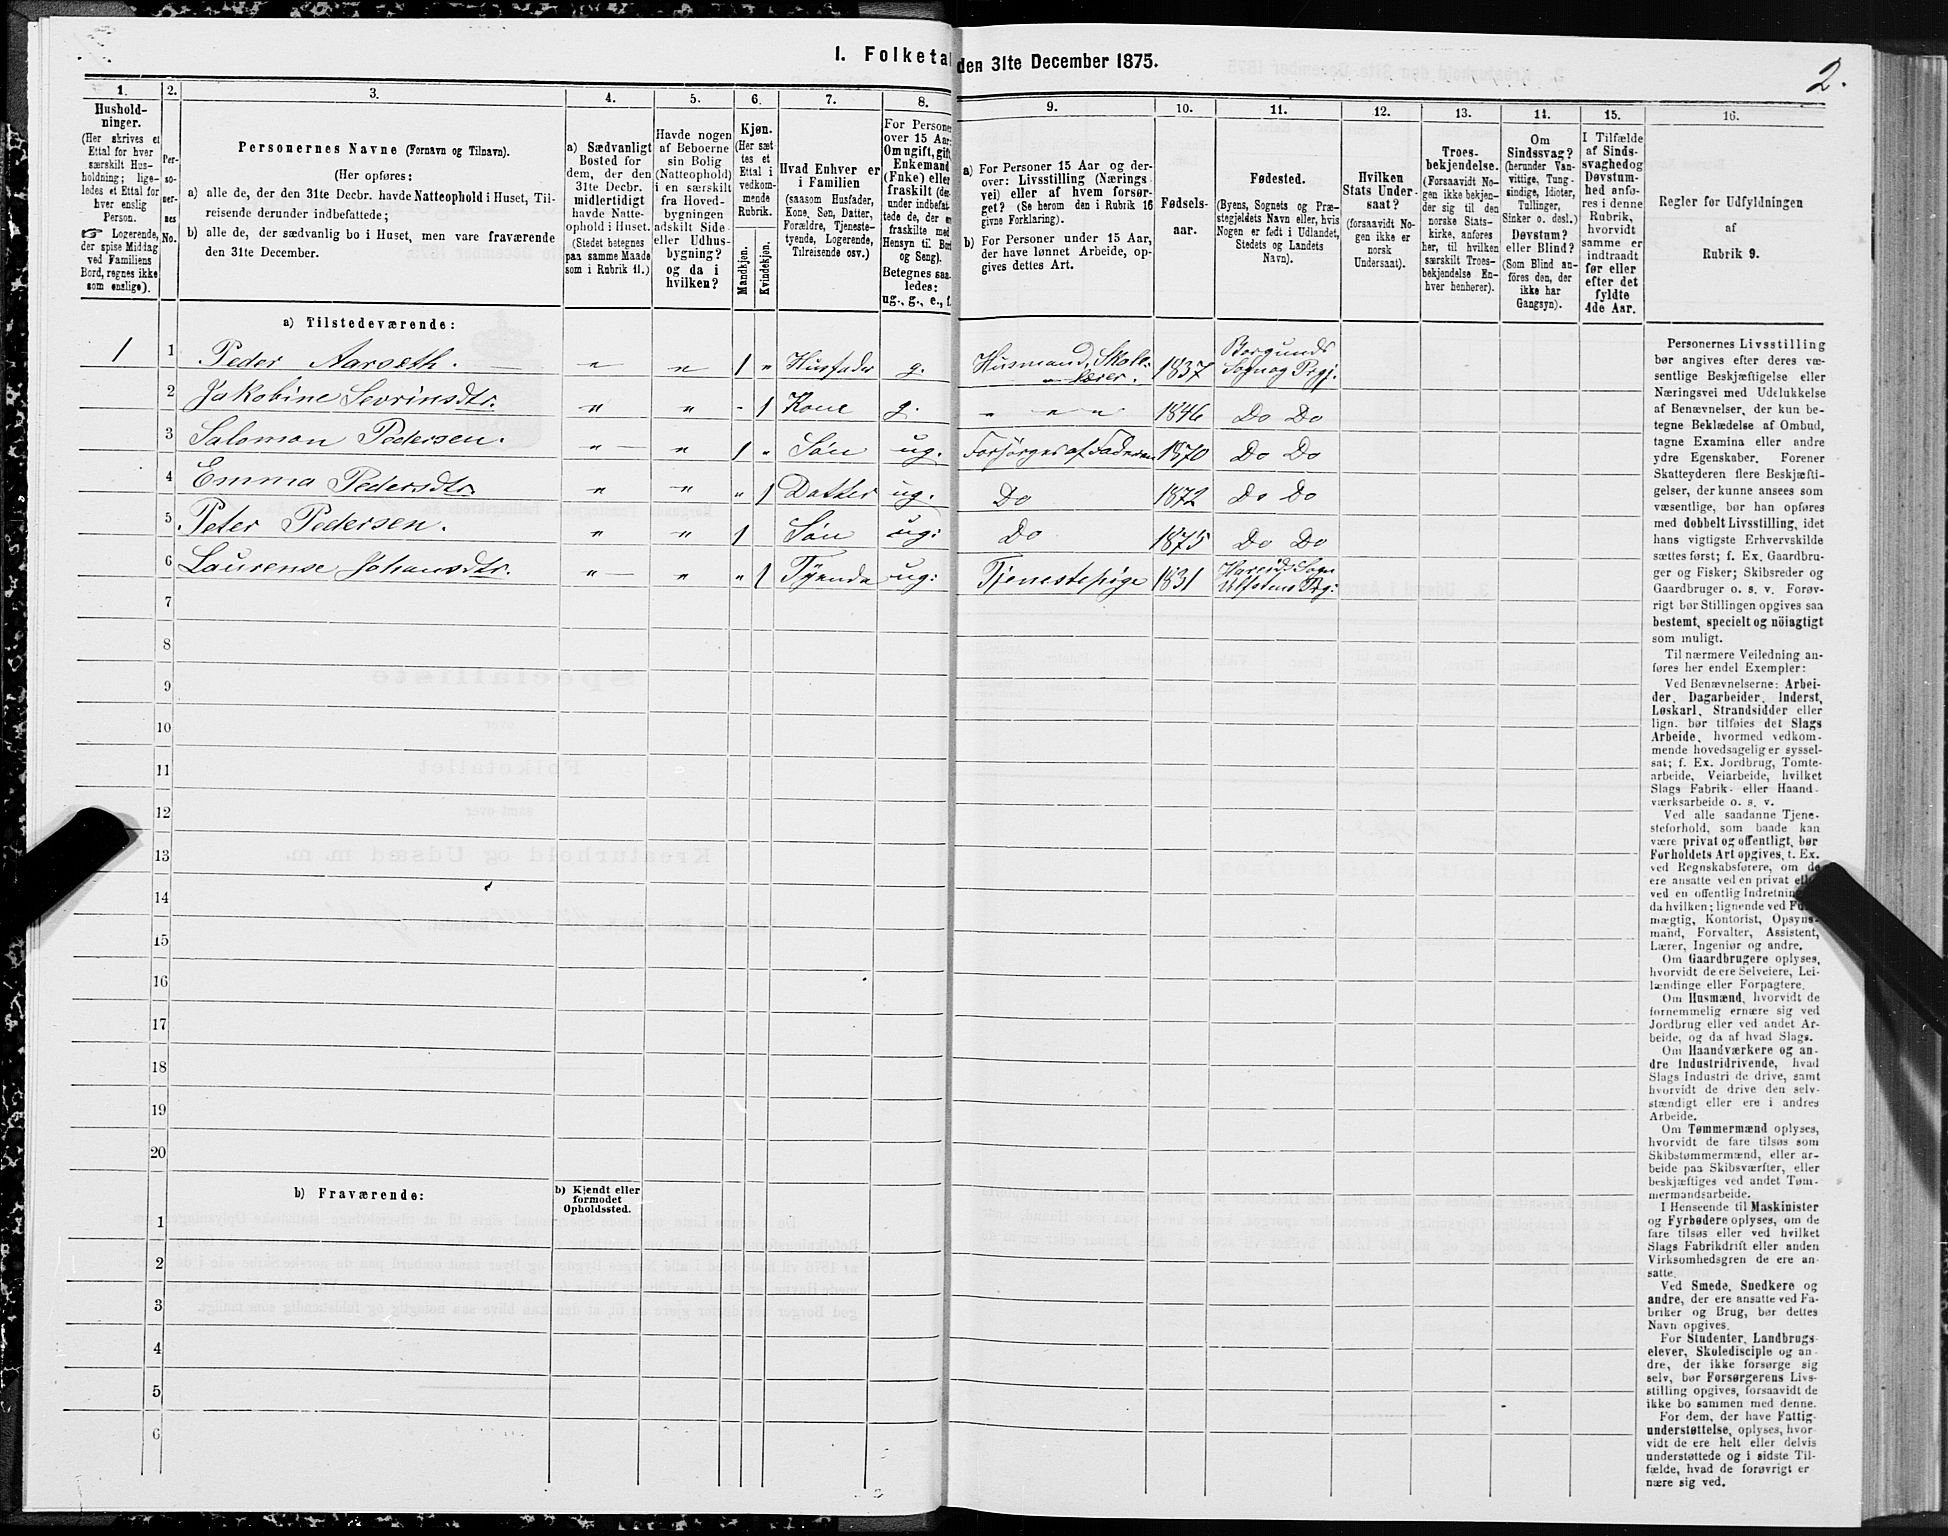 I. Folketal den 31te December 1875.
2.
1.
Hushold-
ninger.
(Her skrives et
Ettal for hver
særskilt Hus-
holdning; lige-
ledes et Ettal for
hver enslig
Person.
☞ Logerende,
der spise Middag
ved Familiens
Bord, regnes ikke
som enslige).
2.
Per-
so-
ner-
nes
No.
3.
Personernes Navne (Fornavn og Tilnavn).
(Her opføres:
a) alle de, der den 31te Decbr. havde Natteophold i Huset, Til-
reisende derunder indbefattede;
b) alle de, der sædvanlig bo i Huset, men vare fraværende
den 31te December.
4.
a) Sædvanligt
Bosted for
dem, der den
31te Decbr.
midlertidigt
havde Natte-
ophold i Huset.
(Stedet betegnes
paa samme Maade
som i Rubrik 11.)
5.
Havde nogen
af Beboerne
sin Bolig
(Natteophold)
i en særskilt
fra Hoved-
bygningen
adskilt Side-
eller Udhus-
bygning?
og da i
hvilken?
6.
Kjøn.
(Her sæt-
tes et
Ettal i
vedkom-
mende
Rubrik.
Mandkjøn.
Kvindekjøn.
7.
Hvad Enhver er
i Familien
(saasom Husfader,
Kone, Søn, Datter,
Forældre, Tjeneste-
tyende, Logerende,
Tilreisende osv.)
8.
For Personer
over 15 Aar:
Om ugift, gift,
Enkemand
(Enke) eller
fraskilt (der-
under indbefat-
tede de, der ere
fraskilte med
Hensyn til Bord
og Seng).
Betegnes saa-
ledes:
ug., g., e., f.
9.
a) For Personer 15 Aar og der-
over: Livsstilling (Nærings-
vei) eller af hvem forsør-
get? (Se herom den i Rubrik 16
givne Forklaring).
b) For Personer under 15 Aar,
der have lønnet Arbeide, op-
gives dettes Art.
10.
Fødsels-
aar.
11.
Fødested.
(Byens, Sognets og Præ-
stegjeldets Navn eller, hvis
Nogen er født i Udlandet,
Stedets og Landets
Navn).
12.
Hvilken
Stats Under-
saat?
(forsaavidt No-
gen ikke er
norsk
Undersaat).
13.
Troes-
bekjendelse.
(Forsaavidt No-
gen ikke bekjen-
der sig til den
norske Stats-
kirke, anføres
her, til hvilken
særskilt Troes-
bekjendelse En-
hver henhører).
14.
Om
Sindssvag?
(herunder Van-
vittige, Tung-
sindige, Idioter,
Tullinger,
Sinker o. desl.)
Døvstum?
eller Blind?
(Som Blind an-
føres den, der
ikke har
Gangsyn).
15.
I Tilfælde
af Sinds-
svaghed og
Døvstum-
hed anfø-
res i denne
Rubrik,
hvorvidt
samme er
indtraadt
før eller
efter det
fyldte
4de Aar.
16.
Regler for Udfyldningen
af
Rubrik 9.
a) Tilstedeværende:
1 1 Peder Aarseth. " " 1 " Husfader g. Husmand, Skole- 1837 Borgunds
lærer. Sogn og Prgj.
2 Jakobine Sevrinsdtr. " " - 1 Kone g. " " " 1846 Do Do
3 Salomon Pedersen. " " 1 " Søn ug. Forsørges af Faderen 1870 Do Do
4 Emma Pedersdtr. " " " 1 Datter ug. Do 1872 Do Do
5 Peter Pedersen. " " 1 Søn ug: Do 1875 Do Do
6 Laurense Johansdtr. " " " 1 Tyende ug: Tjenestepige 1831 Hareids Sogn
Ulfstens Prg:
7
8
9
10
11
12
13
14
15
16
17
18
19
20
b) Fraværende:
b) Kjendt eller
formodet
Opholdssted.
1
2
3
4
5
6
Personernes Livsstilling
bør angives efter deres væ-
sentlige Beskjæftigelse eller
Næringsvei med Udelukkelse
af Benævnelser, der kun be-
tegne Beklædelse af Ombud,
tagne Examina eller andre
ydre Egenskaber. Forener
Skatteyderen flere Beskjæfti-
gelser, der kunne ansees som
væsentlige, bør han opføres
med dobbelt Livsstilling, idet
hans vigtigste Erhvervskilde
sættes først; f. Ex. Gaardbru-
ger og Fisker; Skibsreder og
Gaardbruger o. s. v. Forøv-
rigt bør Stillingen opgives saa
bestemt, specielt og nöiagtigt
som muligt.
Til nærmere Veiledning an-
føres her endel Exempler:
Ved Benævnelserne: Arbei-
der, Dagarbeider, Inderst,
Løskarl, Strandsidder eller
lign. bør tilføies det Slags
Arbeide, hvormed vedkom-
mende hovedsagelig er syssel-
sat; f. Ex. Jordbrug, Tomte-
arbeide, Veiarbeide, hvilket
Slags Fabrik- eller Haand-
værksarbeide o. s. v.
Ved alle saadanne Tjene-
steforhold, som baade kan
være privat og offentligt, bør
Forholdets Art opgives, f. Ex.
ved Regnskabsførere, om de
ere ansatte ved en privat eller
ved en offentlig Indretning
da hvilken; lignende ved Fuld-
mægtig, Kontorist, Opsyns-
mand, Forvalter, Assistent,
Lærer, Ingeniør og andre.
Om Gaardbrugere oplyses,
hvorvidt de ere Selveiere, Lei-
lændinge eller Forpagtere.
Om Husmænd, hvorvidt de
fornemmelig ernære sig ved
Jordbrug eller ved andet Ar-
beide, og da af hvad Slags.
Om Haandværkere og an-
dre Industridrivende, hvad
Slags Industri de drive, samt
hvorvidt de drive den selv-
stændigt eller ere i andres
Arbeide.
Om Tømmermænd oplyses,
hvorvidt de fare tilsøs som
Skibstømmermænd, eller ar-
beide paa Skibsværfter, eller
beskjæftiges ved andet Tøm-
mermandsarbeide.
I Henseende til Maskinister
og Fyrbødere oplyses, om de
fare tilsøs eller ved hvilket
Slags Fabrikdrift eller anden
Virksomhedsgren de ere an-
satte.
Ved Smede, Snedkere og
andre, der ere ansatte ved Fa-
briker og Brug, bør dettes
Navn opgives.
For Studenter, Landbrugs-
elever, Skoledisciple og an-
dre, der ikke forsørge sig
selv, bør Forsørgerens Livs-
stilling opgives, forsaavidt de
ikke bo sammen med denne.
For dem, der have Fattig-
understøttelse, oplyses, hvor-
vidt de ere helt eller delvis
understøttede og i sidste Til-
fælde, hvad de forøvrigt er-
nære sig ved.